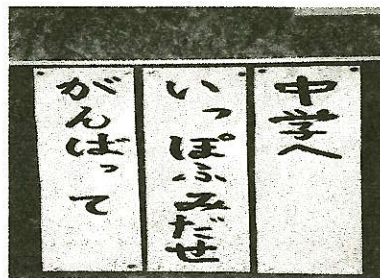 中学へ
いっぽふみだせ
がんばって